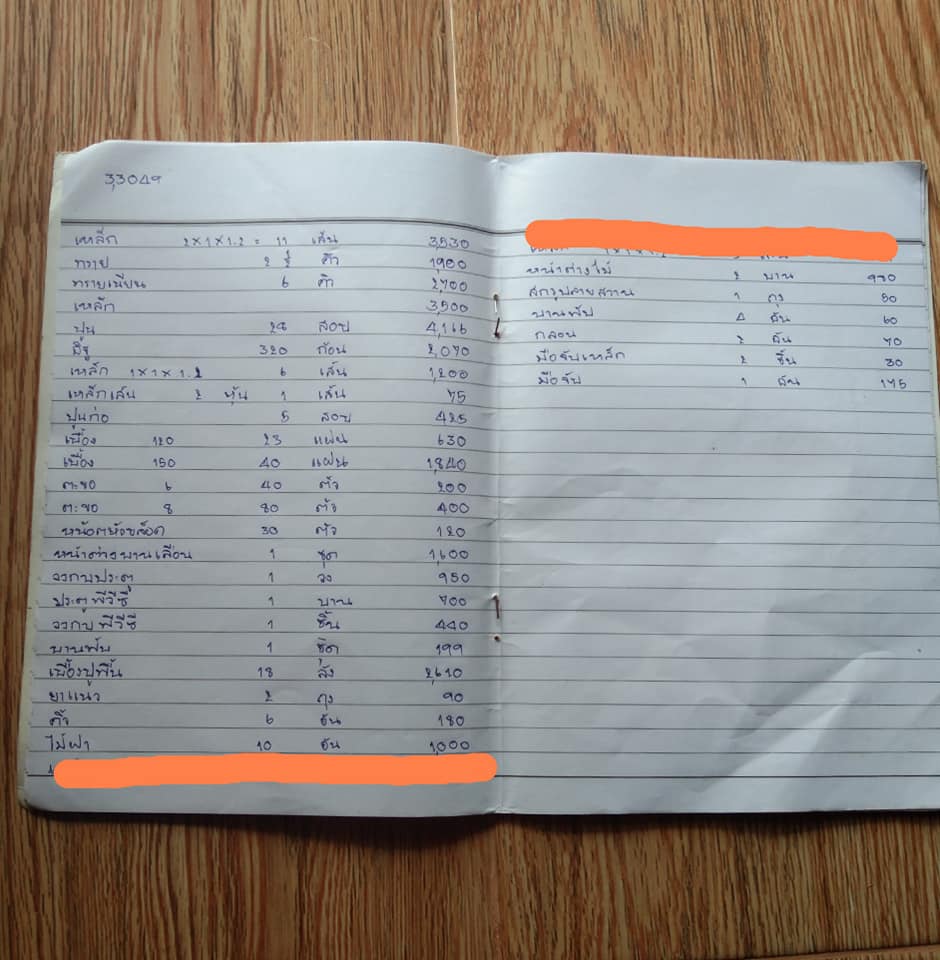 33049
เหล็ก 2×1×1.2 = 11 เส้น 3,530
ทราย 2 1/2 คิว 1,900
ทรายเนียน 6 คิว 2,700
เหล็ก 3,500
ปูน 28 สอบ 4,166
อิฐ 320 ก้อน 2,070
เหล็ก 1×1×1.2 6 เส้น 1,200
เหล็กเส้น 2 หุ้น 1 เส้น 75
ปูนก่อ 5 สอบ 425
เบื้อง 120 23 แผ่น 630
เบื้อง 150 40 แผ่น 1,840
ตะขอ 6 40 ตัว 200
ตะขอ 8 80 ตัว 400
30 ตัว 120
หน้าต่างบานเลือน 1 ชุด 1,600
วงกบประตู 1 วง 950
ประตูพีวีซี 1 บาน 700
วงกบพีวีซี 1 ชิ้น 440
บานพับ 1 ชุด 199
เบื้องปูพื้น 18 ลัง 2,610
ยาแนว 2 ถุง 90
คิ้ว 6 อัน 180
ไม้ฝา 10 อัน 1,000
หน้าต่างไม้ 2 บาน
สกรูปลายสวาน 1 ถุง 50
บานพับ 4 อัน 60
กลอน 2 อัน 70
มือจับเหล็ก 2 ชิ้น 30
มือจับ 1 อัน 175